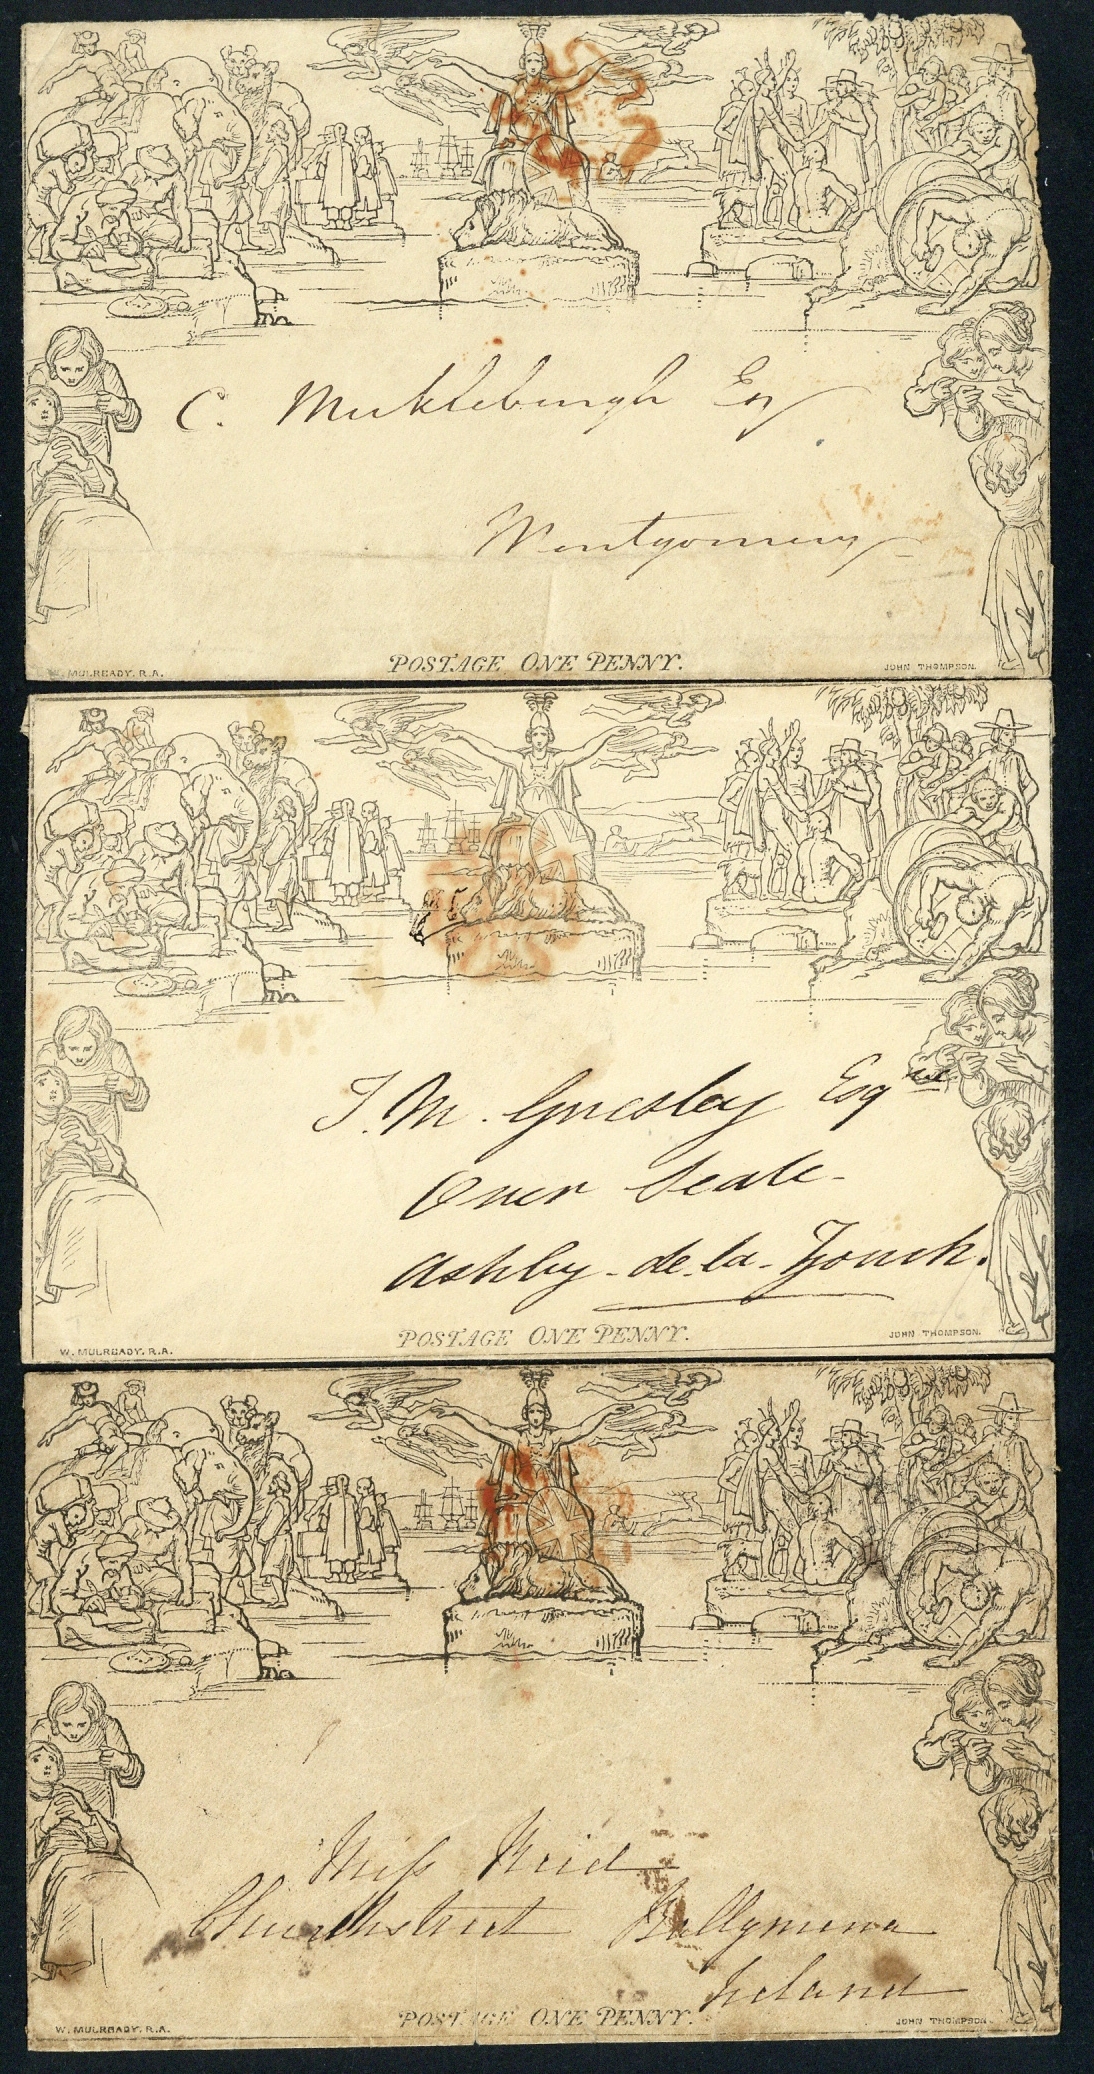 C. Muckleburgh Esq
Montgomery
POSTAGE ONE PENNY.
W. MULREADY. R.A.
JOHN THOMPSON.
J. M. Gresley Esqre
Over Seale
Ashby-de-la-Zouch.
POSTAGE ONE PENNY.
W. MULREADY. R.A.
JOHN THOMPSON.
Miss Reid
Churchstreet Ballymena
Ireland
POSTAGE ONE PENNY.
W. MULREADY. R.A.
JOHN THOMPSON.